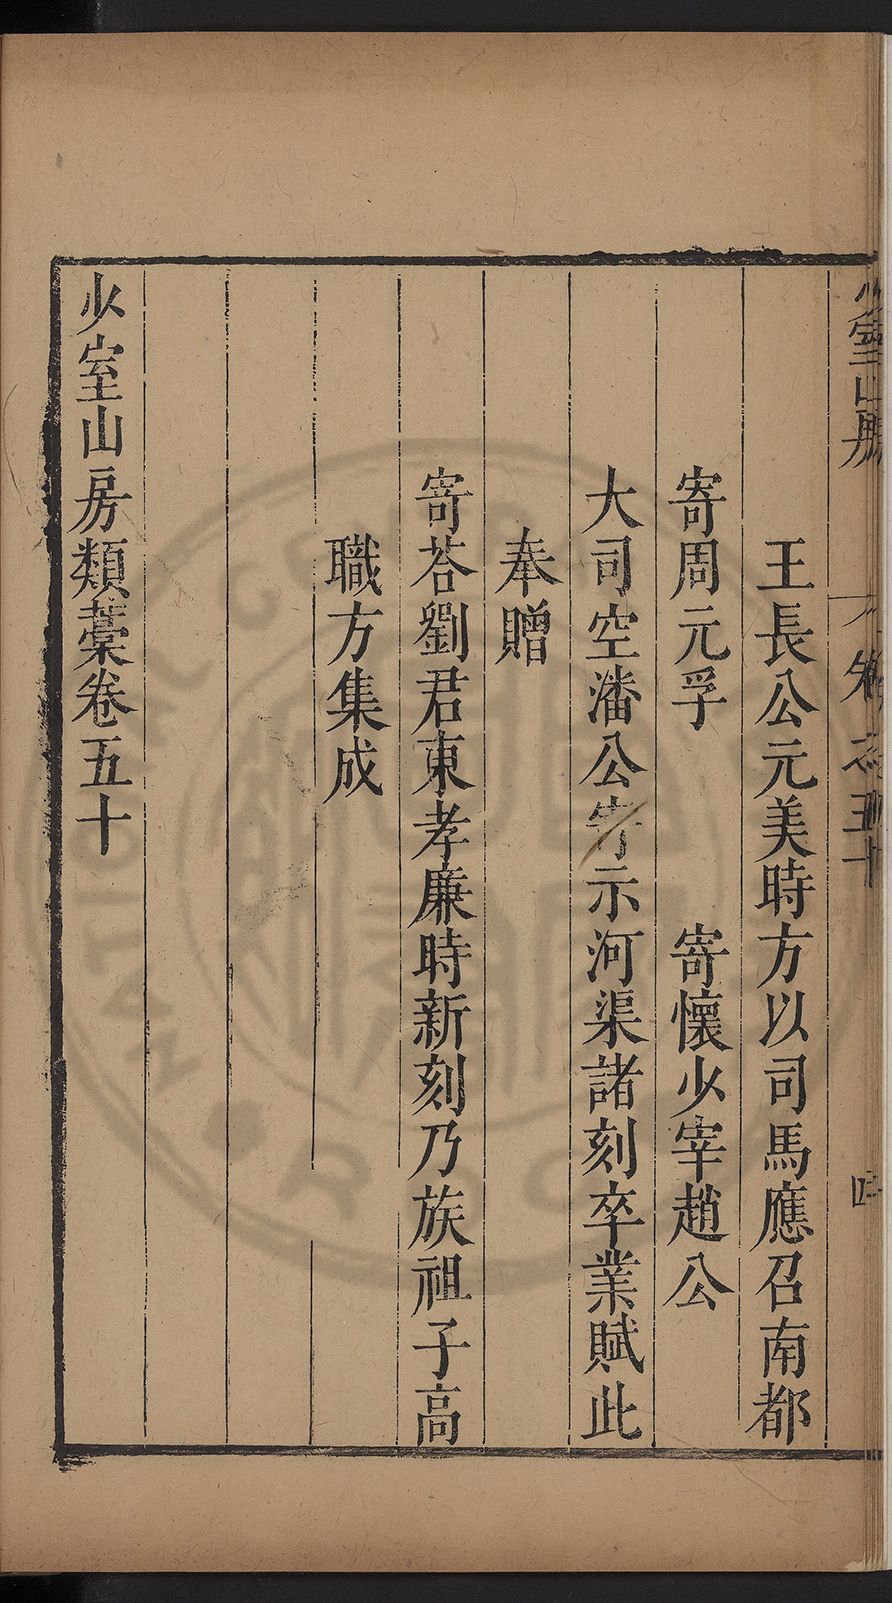 少室山房
卷之五十
四
王長公元美時方以司馬應召南都
寄周元孚　寄懷少宰趙公
大司空潘公寄示河渠諸刻卒業賦此
奉贈
寄荅劉君東孝廉時新刻乃族祖子高
職方集成
少室山房類藁卷五十